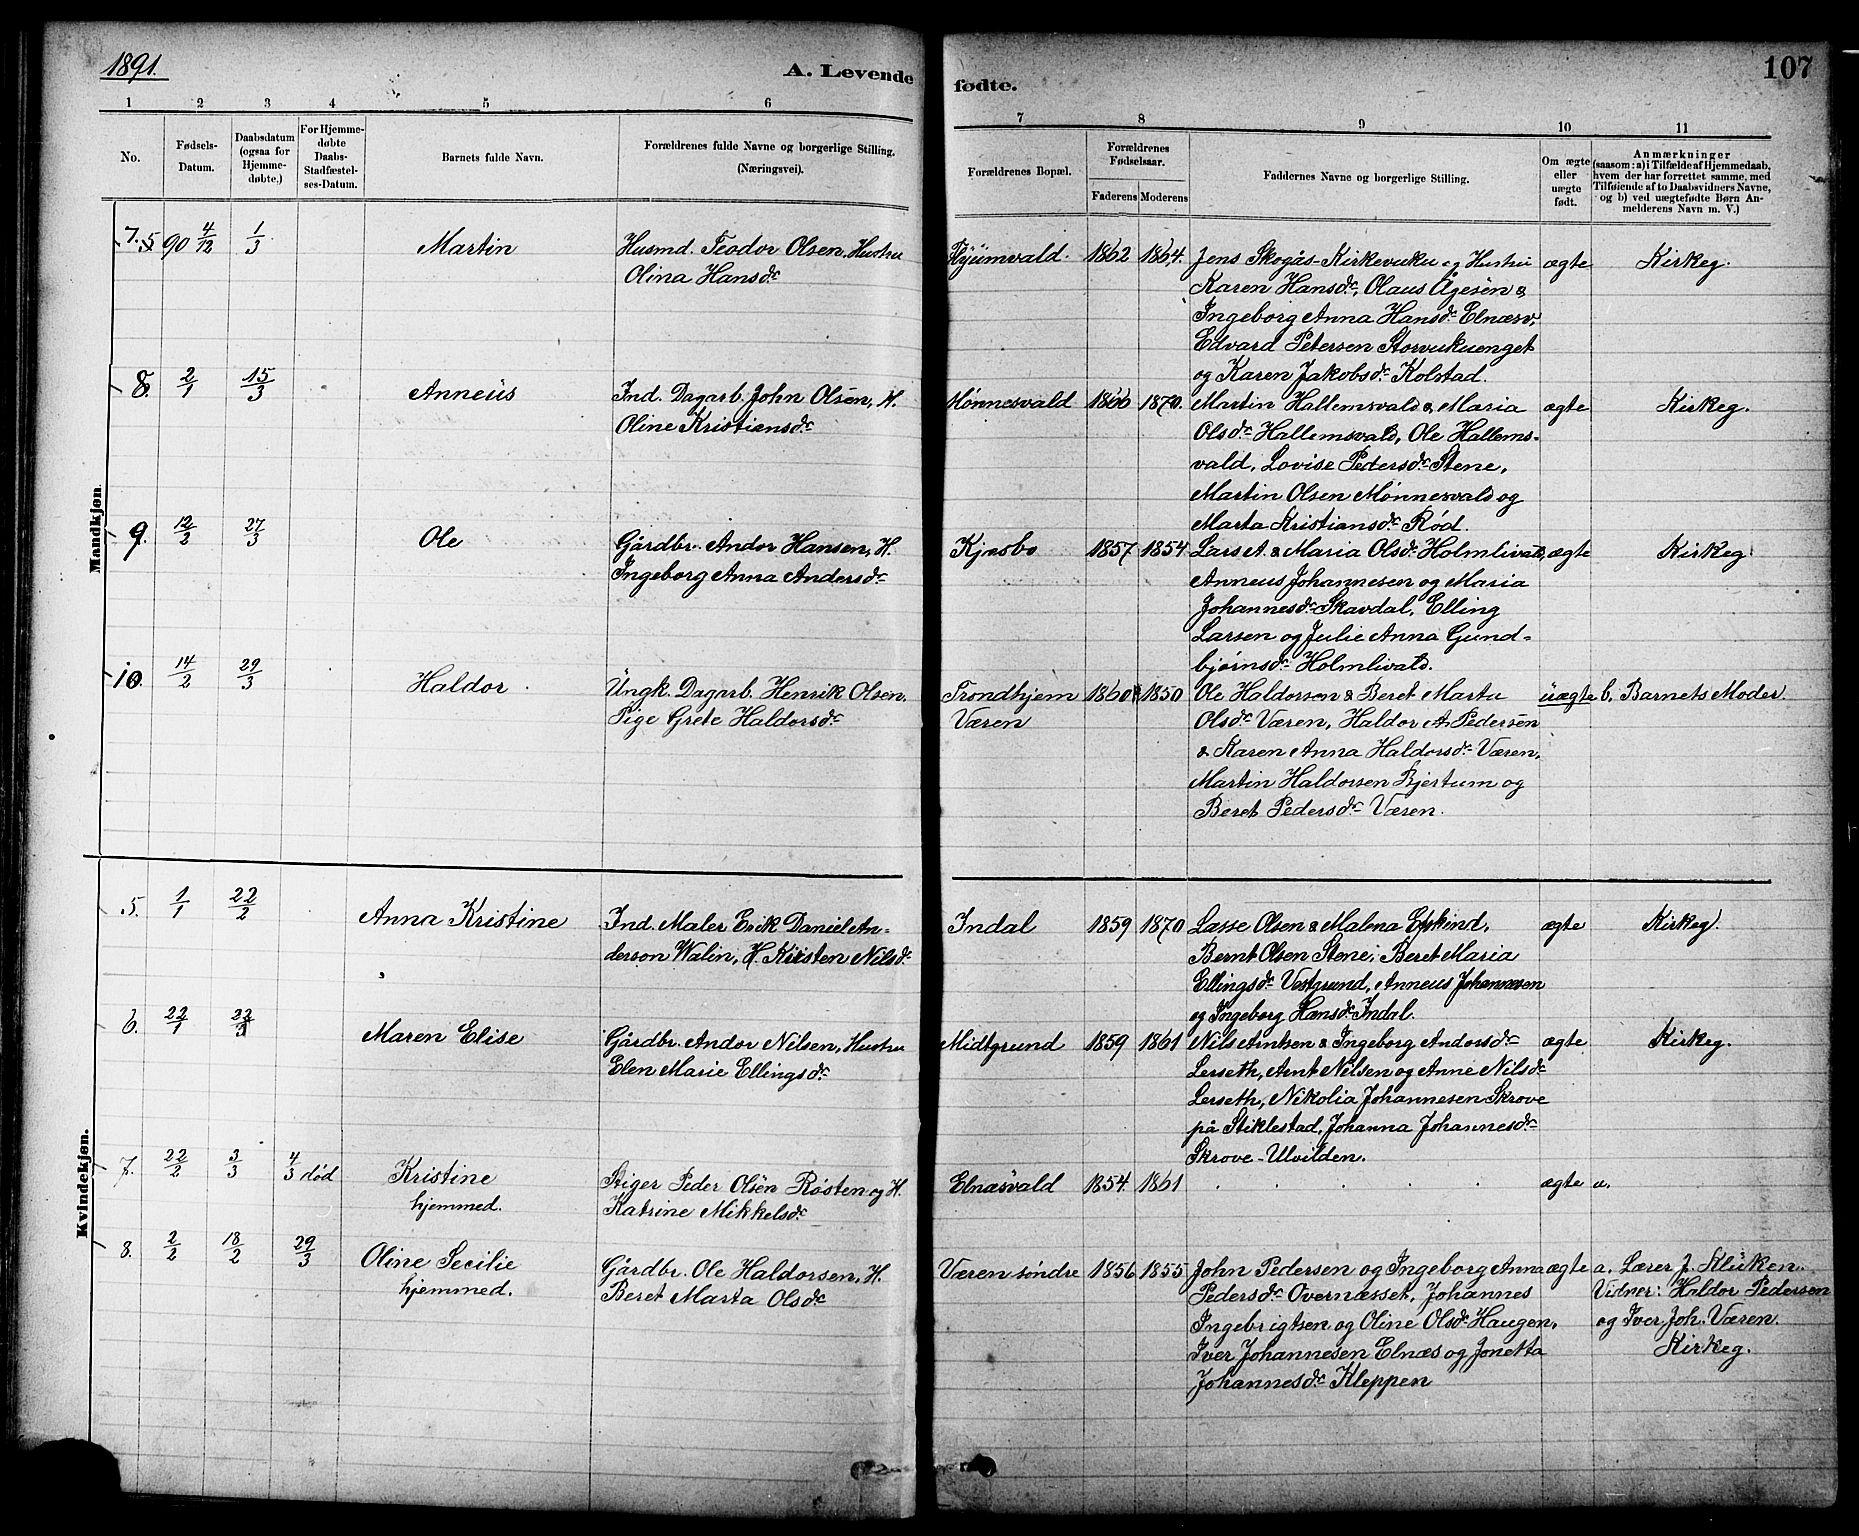 1891.
A. Levende
fødte.
107
1 2 3 4 5 6 7 8 9 10 11
No.
Fødsels-
Datum.
Daabsdatum
(ogsaa for
Hjemme-
døbte.)
For Hjemme-
døbte
Daabs-
Stadfæstel-
ses-Datum.
Barnets fulde Navn.
Forældrenes fulde Navne og borgerlige Stilling.
(Næringsvei).
Forældrenes Bopæl.
Forældrenes
Fødselsaar.
Faderens Moderens
Faddernes Navne og borgerlige Stilling.
Om ægte
eller
uægte
født.
Anmærkninger
(saasom: a) i Tilfælde af Hjemmedaab,
hvem der har forrettet samme, med
Tilføiende af to Daabsvidners Navne,
og b) ved uægtefødte Børn An-
melderens Navn m. V.)
Mandkjøn.
7. 90 4/12 1/3 Martin Husmd. Teodor Olsen, Hustru
Olina Hansdr
1862 1864. Jens Skogås-Kirkevuku og Hustru
Karen Hansdr, Olaus Ågesen &
Ingeborg Anna Hansdr Elnæsv,
Edvard Petersen Storvukuenget
og Karen Jakobsdr Kolstad.
ægte Kirkeg.
8. 2/1 15/3 Anneus Ind. Dagarb. John Olsen, H.
Oline Kristiansdr
Mønnesvald 1866 1870. Martin Hallemsvald & Maria
Olsdr Hallemsvald, Ole Hallems-
vald, Lovise Pedersdr Stene,
Martin Olsen Mønnesvald og
Marta Kristiansdr Rød.
ægte Kirkeg.
9. 12/2 27/3 Ole Gårdbr. Andor Hansen, H.
Ingeborg Anna Andersdr
Kjæsbo 1857 1854. Lars A. & Maria Olsdr Holmlivald,
Anneus Johannesen og Maria
Johannesdr Skavdal, Elling
Larsen og Julie Anna Gund-
bjørnsdr Holmlivald.
ægte Kirkeg.
10. 14/2 29/3 Haldor. Ungk. Dagarb. Henrik Olsen.
Pige Grete Haldorsdr
Trondhjem
Væren
1860 1850 Ole Haldorsen & Beret Marta
Olsdr Væren, Haldor A. Pedersen
& Karen Anna Haldorsdr Væren,
Martin Haldorsen Bjertum og
Beret Pedersdr Væren.
uægte b. Barnets Moder
Kvindekjøn.
5. 1/1 22/2 Anna Kristine Ind. Maler Erik Daniel An-
derson Walin, H. Kirsten Nilsdr
Indal 1859 1870 Lasse Olsen & Malena
Bernt Olsen Stene, Beret Maria
Ellingsdr Vestgrund, Anneus Johannesen
og Ingeborg Hansdr Indal.
ægte Kirkeg.
6. 22/1 22/3 Maren Elise Gårdbr. Andor Nilsen, Hustru
Elen Marie Ellingsdr
Midtgrund 1859 1861 Nils Arntsen & Ingeborg Andorsdr
Lerseth, Arnt Nilsen og Anne Nilsdr
Lerseth, Nikolia Johannesen Skrove
på Stiklestad, Johanna Johannesdr
Skrove-Ulvilden.
ægte Kirkeg.
7. 22/2 3/3 4/3 død Kristine
hjemmed.
Stiger Peder Olsen Røsten og H.
Katrine Mikkelsdr
Elnæsvald 1854. 1861 ægte a.
8. 2/2 18/2 29/3 Oline Secilie
hjemmed.
Gårdbr. Ole Haldorsen, H.
Beret Marta Olsdr
Væren søndre 1856 1855 John Pedersen og Ingeborg Anna
Pedersdr Overnæsset, Johannes
Ingebrigtsen og Oline Olsdr Haugen,
Iver Johannesen Elnæs og Jonetta
Johannesdr Kleppen
ægte a. Lærer J. Klüken.
Vidner: Haldor Pedersen
og Iver Joh. Væren.
Kirkeg.